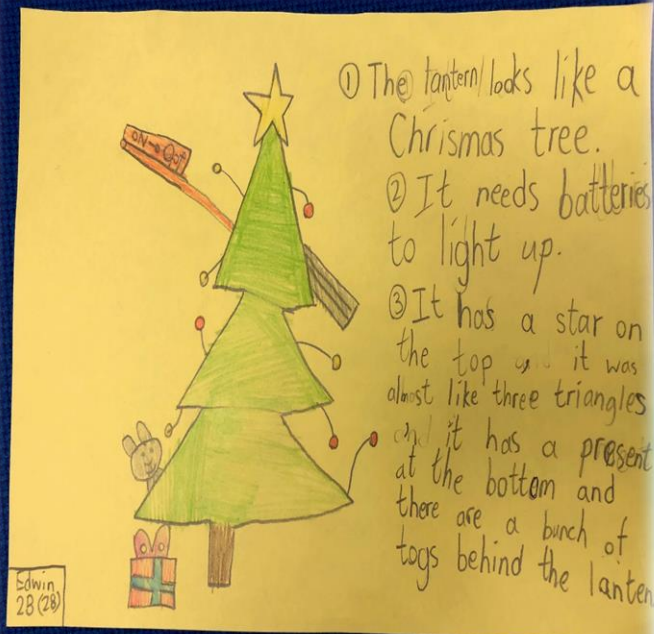 ON→OFF
① The lantern looks like a
Chrismas tree.
② It needs batteries
to light up.
③ It has a star on
the top and it was
almost like three triangles
and it has a present
at the bottom and
there are a bunch of
togs behind the lanten
Edwin
2B (28)